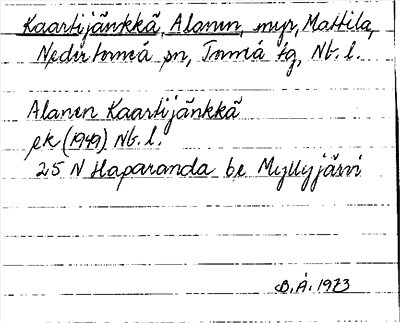 Kaartijänkkä, Alanen, myr, Mattila,
Nedertorneå sn, Torneå tg, Nb. l.
Alanen Kaartijänkkä
ek (1949) Nb. l.
25 N Haparanda be Myllyjärvi
B.Å. 1973